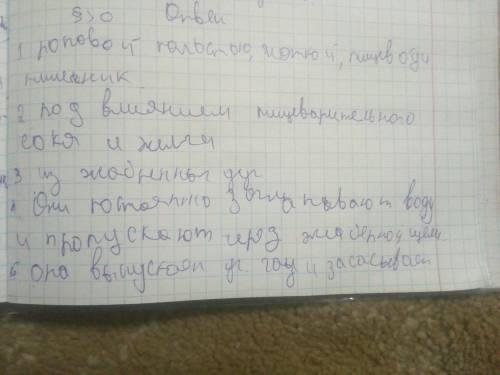 §30 Ответ
1 ротовой полостью, глоткой, пищевод и
кишечник
2 под влиянием пищеварительного
сока и желчи
3 из жаберных дуг
Они постоянно заглатывают воду
и пропускают через жаберные щели
она выпускает и засасывает